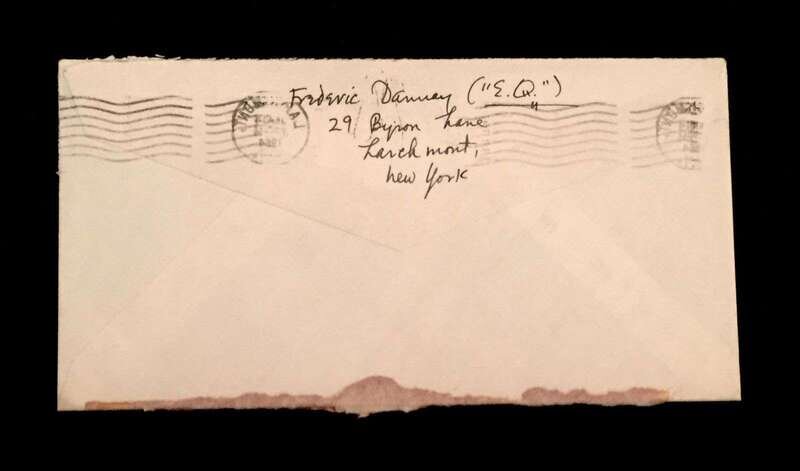 Frederic Dannay ("E.Q.")
29 Byron Lane
Larchmont,
New York